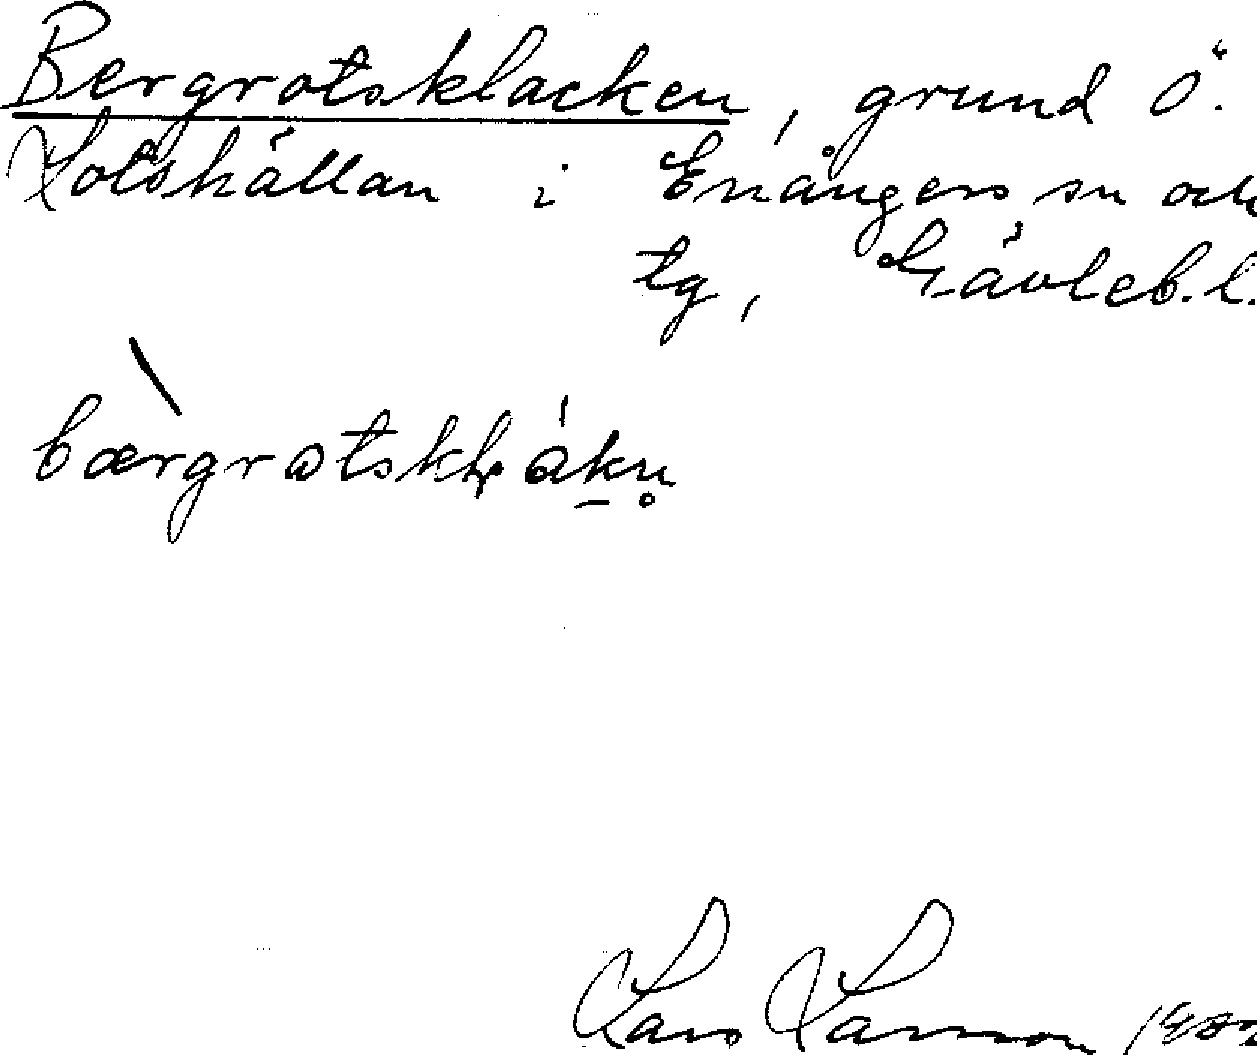 Bergrotsklacken, grund Ö.
Lotshällan i Enångers sn och
tg, Gävleb. l.
Lars Larsson